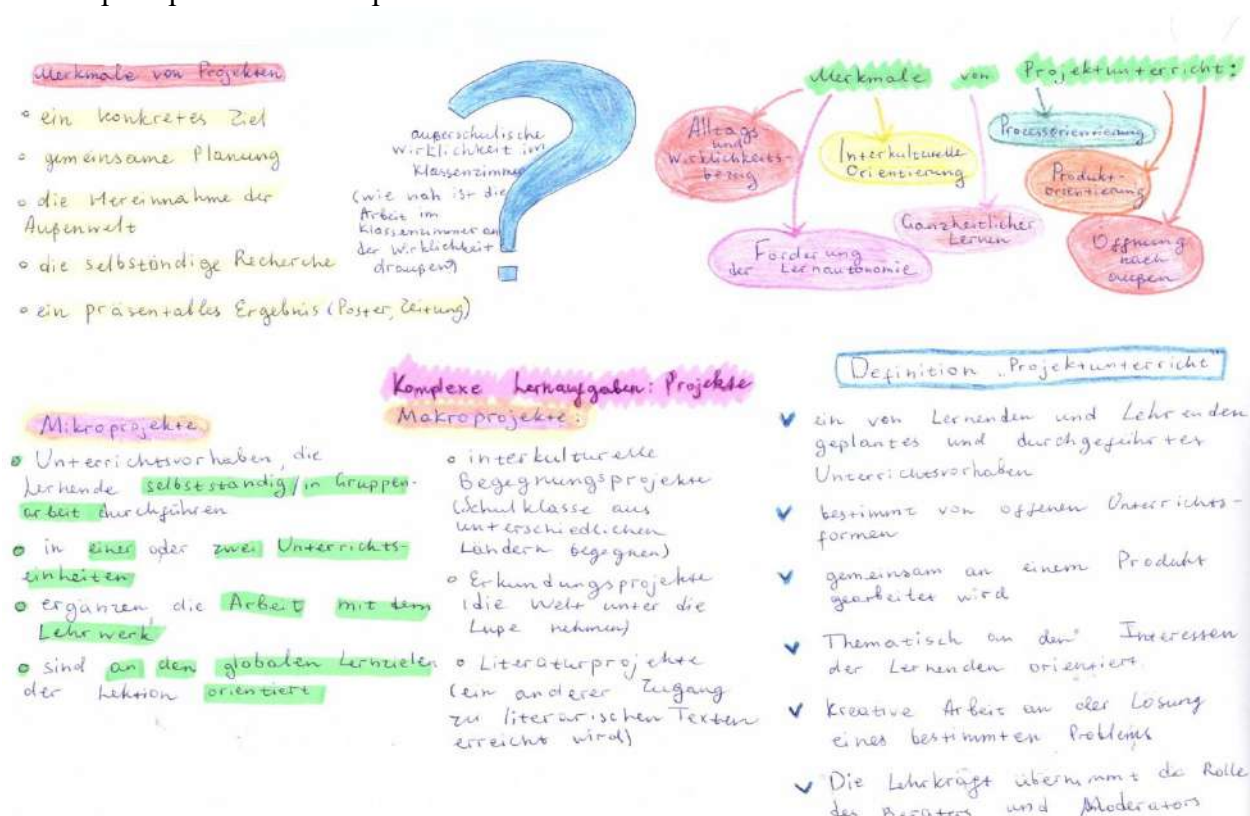 Merkmale von Projekten
ein konkretes Ziel
gemeinsame Planung
die Hereinnahme der
Außenwelt
die selbständige Recherche
ein präsentables Ergebnis (Poster, Zeitung)
außerschulische
Wirklichkeit im
Klassenzimmer
(wie nah ist die
Arbeit im
Klassenzimmer an
der Wirklichkeit
draußen)
?
Merkmale von Projektunterricht:
Alltags
und
Wirklichkeits-
bezug
Förderung
der Lernautonomie
Interkulturelle
Orientierung
Ganzheitlicher
Lernen
Prozessorientierung
Produkt-
orientierung
Öffnung
nach
außen
Komplexe Lernaufgaben: Projekte
Mikroprojekte
Unterrichtsvorhaben, die
Lernende selbstständig/in Gruppen-
arbeit durchführen
in einer oder zwei Unterrichts-
einheiten
ergänzen die Arbeit mit dem
Lehrwerk
sind an den globalen Lernzielen
der Lektion orientiert
Makroprojekte:
interkulturelle
Begegnungsprojekte
(Schulklasse aus
unterschiedlichen
Ländern begegnen)
Erkundungsprojekte
(die Welt unter die
Lupe nehmen)
Literaturprojekte
(ein anderer Zugang
zu literarischen Texten
erreicht wird)
Definition "Projektunterricht"
ein von Lernenden und Lehrenden
geplantes und durchgeführtes
Unterrichtsvorhaben
bestimmt von offenen Unterrichts-
formen
gemeinsam an einem Produkt
gearbeitet wird
Thematisch an den Interessen
der Lernenden orientiert
kreative Arbeit an der Lösung
eines bestimmten Problems
Die Lehrkraft übernimmt die Rolle
des Beraters und Moderators